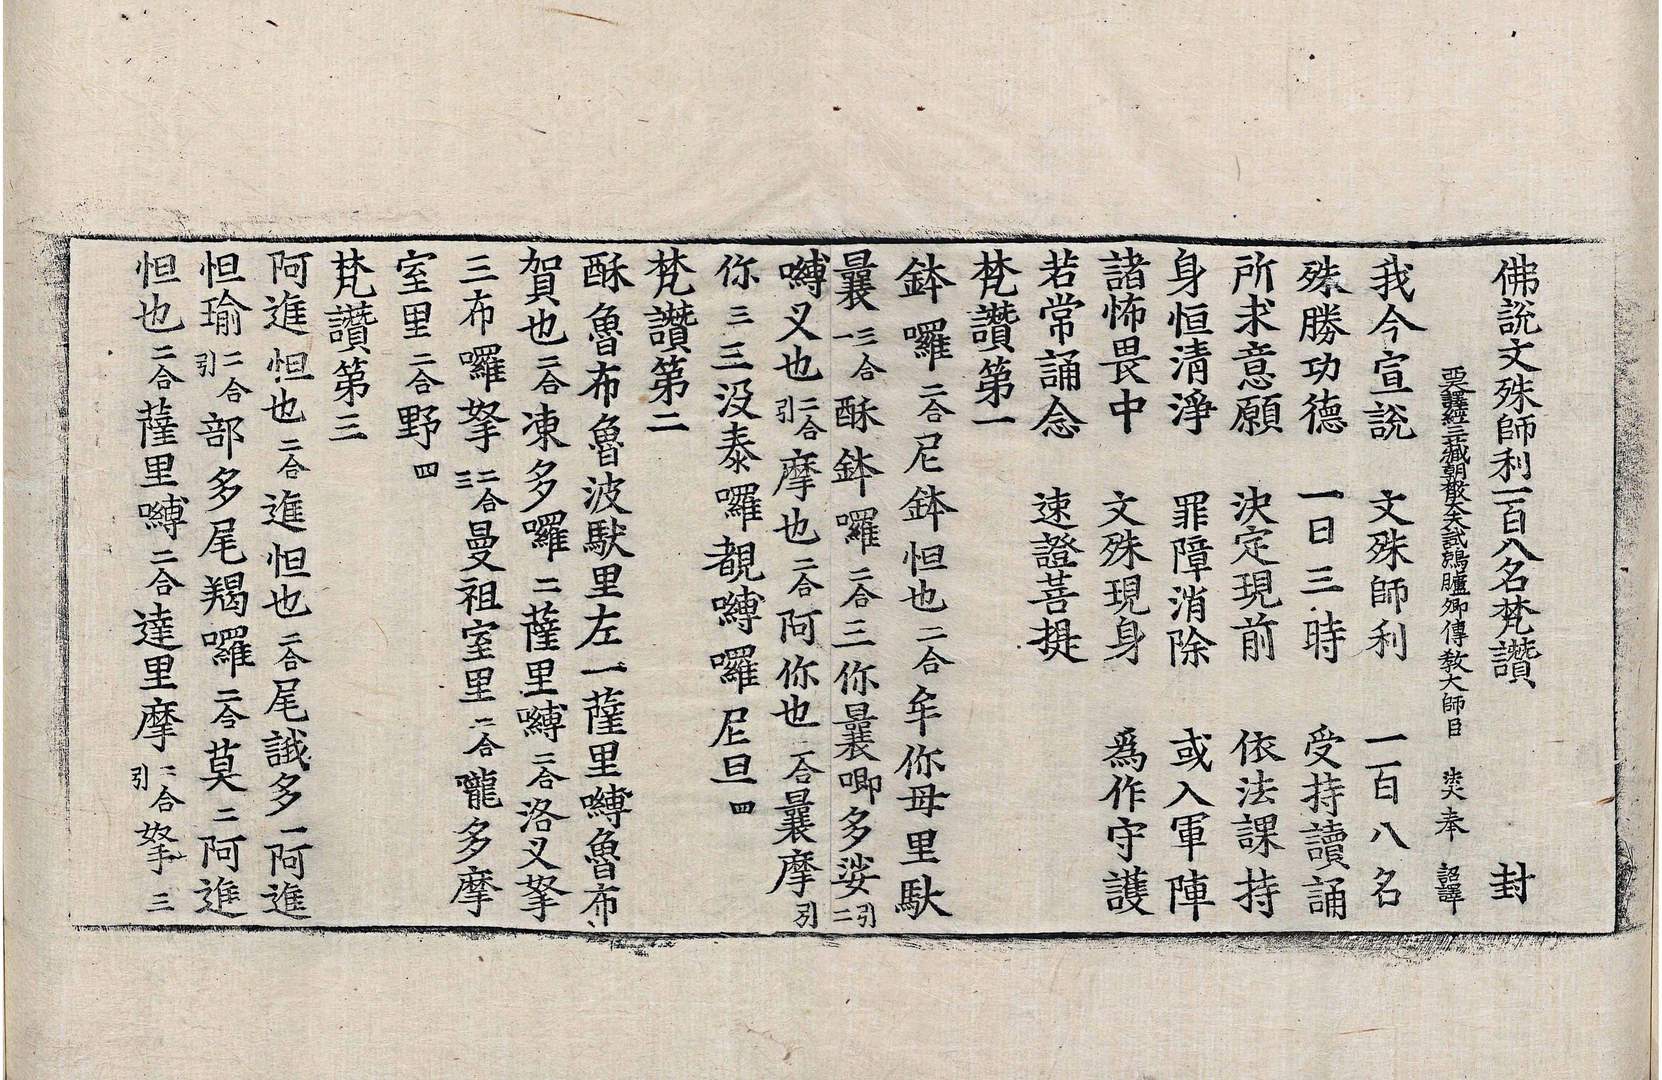 佛說文殊師利一百八名梵讚 封
西天譯經三藏朝散大夫試鴻臚卿傳教大師臣 奉 詔譯
我今宣說 文殊師利 一百八名
殊勝功德 一日三時 受持讀誦
所求意願 決定現前 依法課持
身恒清淨 罪障消除 或入軍陣
諸怖畏中 文殊現身 爲作守護
若常誦念 速證菩提
梵讚第一
鉢囉二合尼鉢怛也二合牟你母里馱
曩三合一酥鉢囉二合三你曩唧多娑引二
嚩义也二合引摩也二合阿你也二合曩摩引
你三三没泰囉覩嚩囉尼旦四
梵讚第二
酥魯布魯波馱里左一薩里嚩魯布
賀也二合凍多囉二薩里嚩二合洛义拏
三布囉拏二合三曼祖室里二合嚨多摩
室里二合野四
梵讚第三
阿進怛也二合進怛也二合尾誐多一阿進
怛瑜二合引部多尾羯囉二合莫二阿進
怛也二合薩里嚩二合達里摩二合引拏三